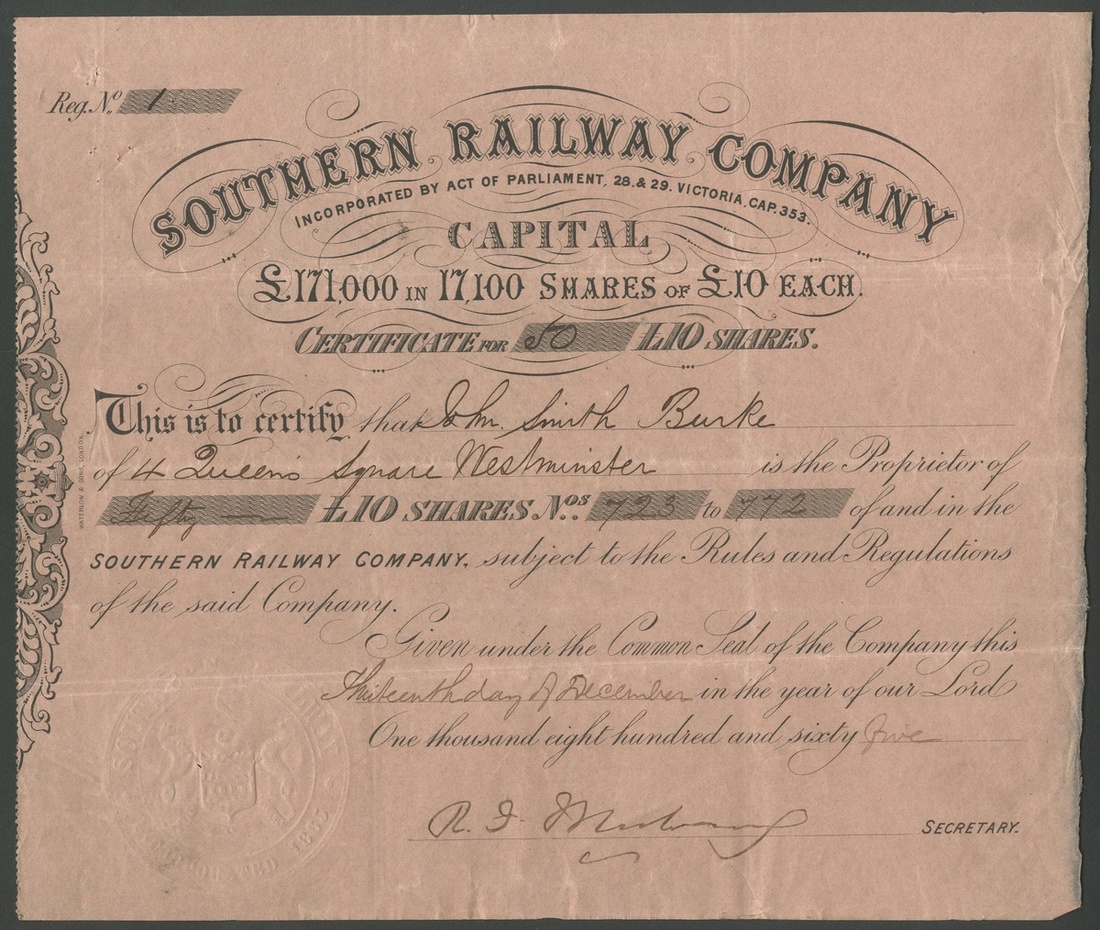 Reg. No. 1
SOUTHERN RAILWAY COMPANY
INCORPORATED BY ACT OF PARLIAMENT, 28 & 29. VICTORIA, CAP. 353.
CAPITAL
£171,000 IN 17,100 SHARES OF £10 EACH.
CERTIFICATE FOR 50 £10 SHARES.
This is to certify that John Smith Burke
of 4 Queen's Square Westminster is the Proprietor of
Fifty — £10 SHARES. Nos. 723 to 772 of and in the
SOUTHERN RAILWAY COMPANY, subject to the Rules and Regulations
of the said Company.
Given under the Common Seal of the Company this
Thirteenth day of December in the year of our Lord
One thousand eight hundred and sixty five
R. F.
SECRETARY.
WATERLOW & SONS, LONDON.
1865